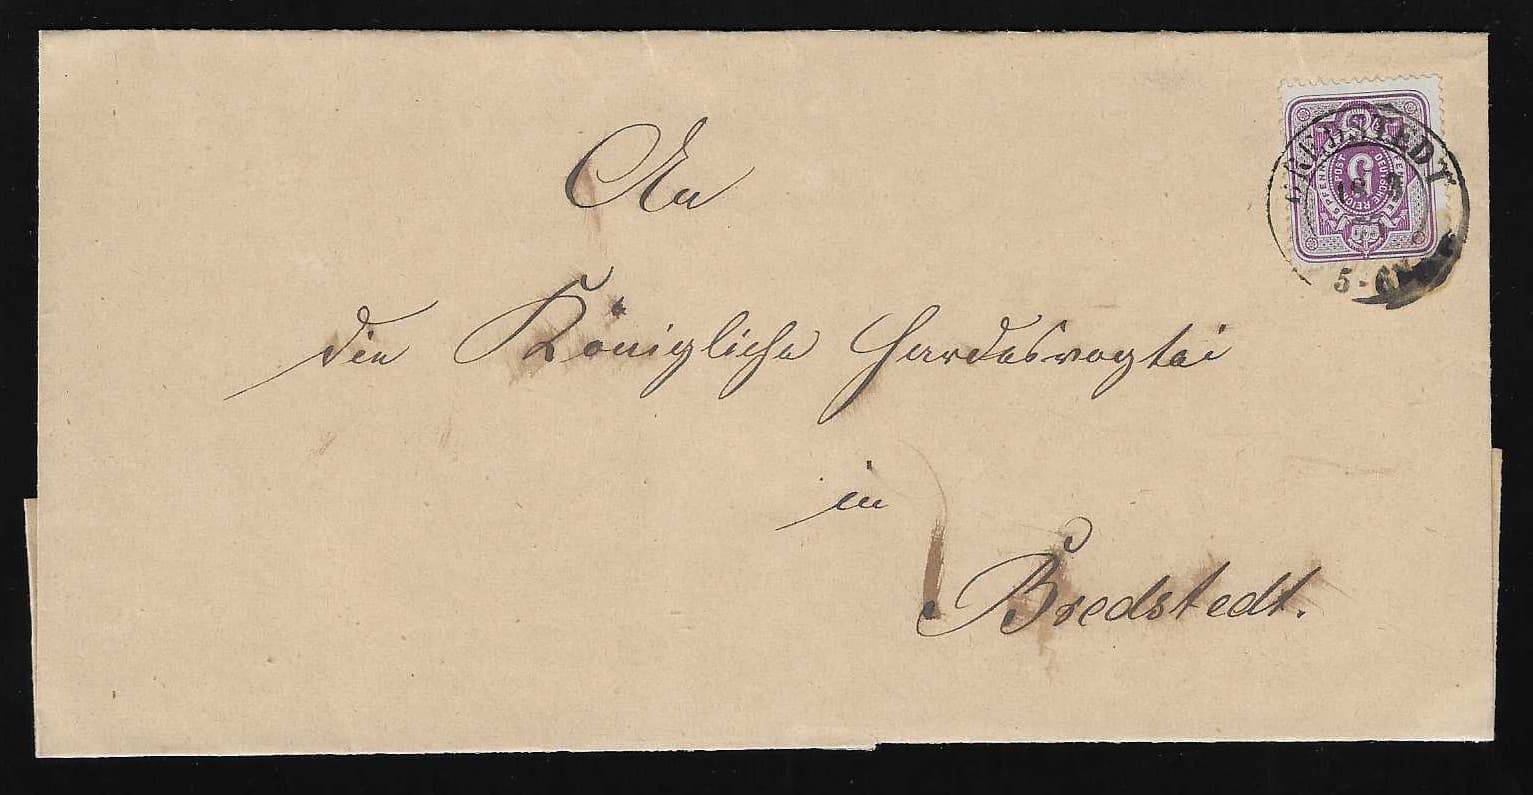 An
die Königliche Hardesvogtei
in
Bredstedt.
BREDSTEDT
18
5-6
DEUTSCHE REICHS-POST
5
5 PFENNIGE